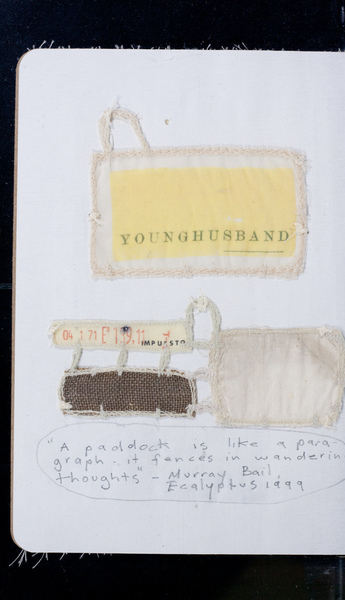 YOUNGHUSBAND
04 1 71 E 1 9.11
IMPUESTO
"A paddock is like a para-
graph - it fences in wanderin
thoughts" - Murray Bail,
Ecalyptus 1999